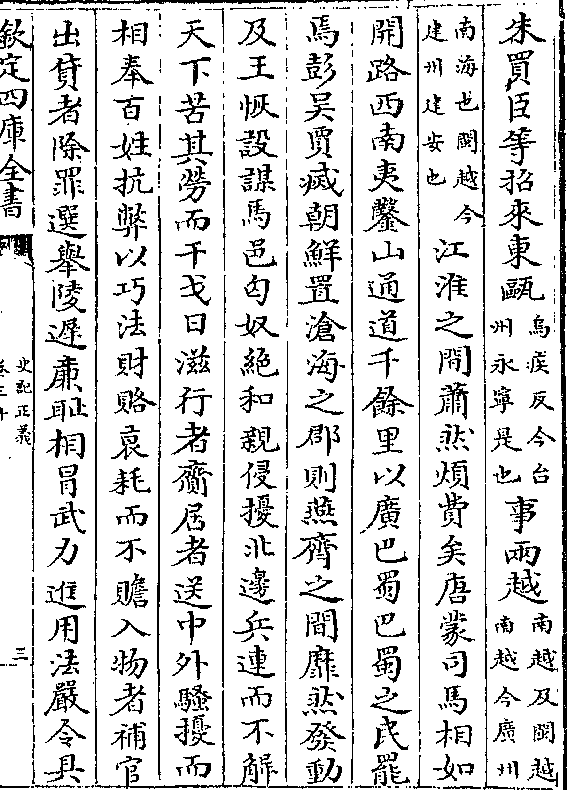 朱買臣等招來東甌烏疾反今台州永寧是也事兩越南越及閩越南越今廣州
南海也閩越今建州建安也江淮之間蕭然煩費矣唐蒙司馬相如
開路西南夷鑿山通道千餘里以廣巴蜀巴蜀之民罷
焉彭吳賈滅朝鮮置滄海之郡則燕齊之間靡然發動
及王恢設謀馬邑匈奴絶和親侵擾北邊兵連而不解
天下苦其勞而干戈日滋行者齎居者送中外騷擾而
相奉百姓抗弊以巧法財賂衰耗而不贍入物者補官
出貨者除罪選舉陵遲廉恥相冒武力進用法嚴令具
欽定四庫全書
史記正義
卷三十
三